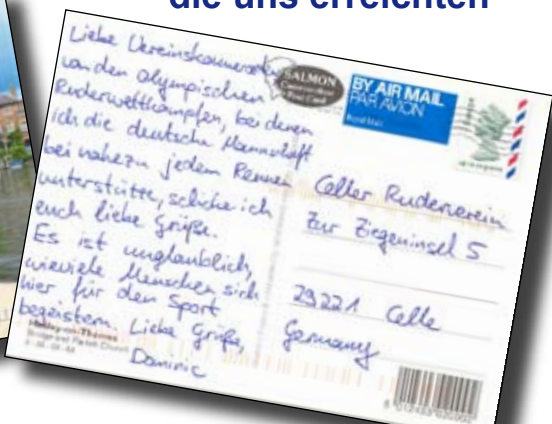 die uns erreichten
Liebe Vereinskameraden
von den olympischen
Ruderwettkämpfen, bei denen
ich die deutsche Mannschaft
bei nahezu jedem Rennen
unterstütze, schicke ich
euch liebe Grüße.
Es ist unglaublich,
wieviele Menschen sich
hier für den Sport
begeistern. Liebe Grüße,
Dominic
SALMON
Post Card
BY AIR MAIL
PAR AVION
Royal Mail
Celler Ruderverein
Zur Ziegeninsel 5
29221 Celle
Germany
Henley-on-Thames